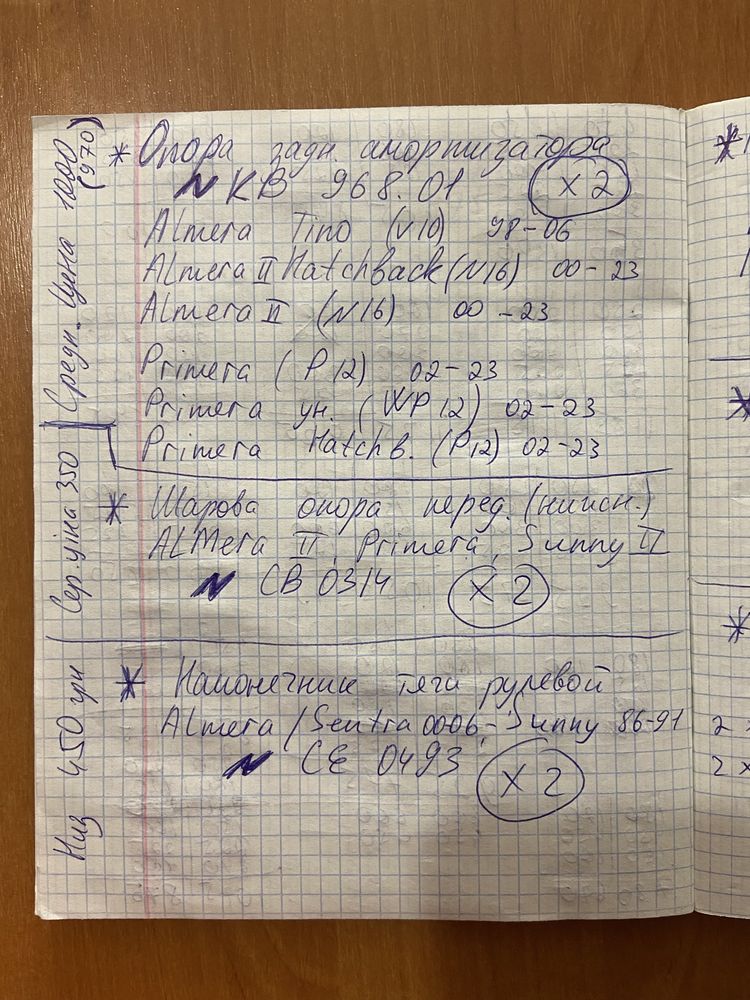 * Опора задн. амортизатора
N КВ 968.01 x 2
Almera Tino (V10) 98-06
Almera II Hatchback (N16) 00-23
Almera II (N16) 00-23
Primera (P12) 02-23
Primera ун. (WP12) 02-23
Primera Hatchb. (P12) 02-23
Средн. Цена 1000
(970)
* Шарова опора перед. (нижн.)
ALMera II, Primera, Sunny II
N CB 0314 x 2
Сер. ціна 350
* Наконечник тяги рулевой
Almera / Sentra 0006, - Sunny 86-91
N CE 0493 x 2
Низ 450 грн
*
*
*
2
2 x